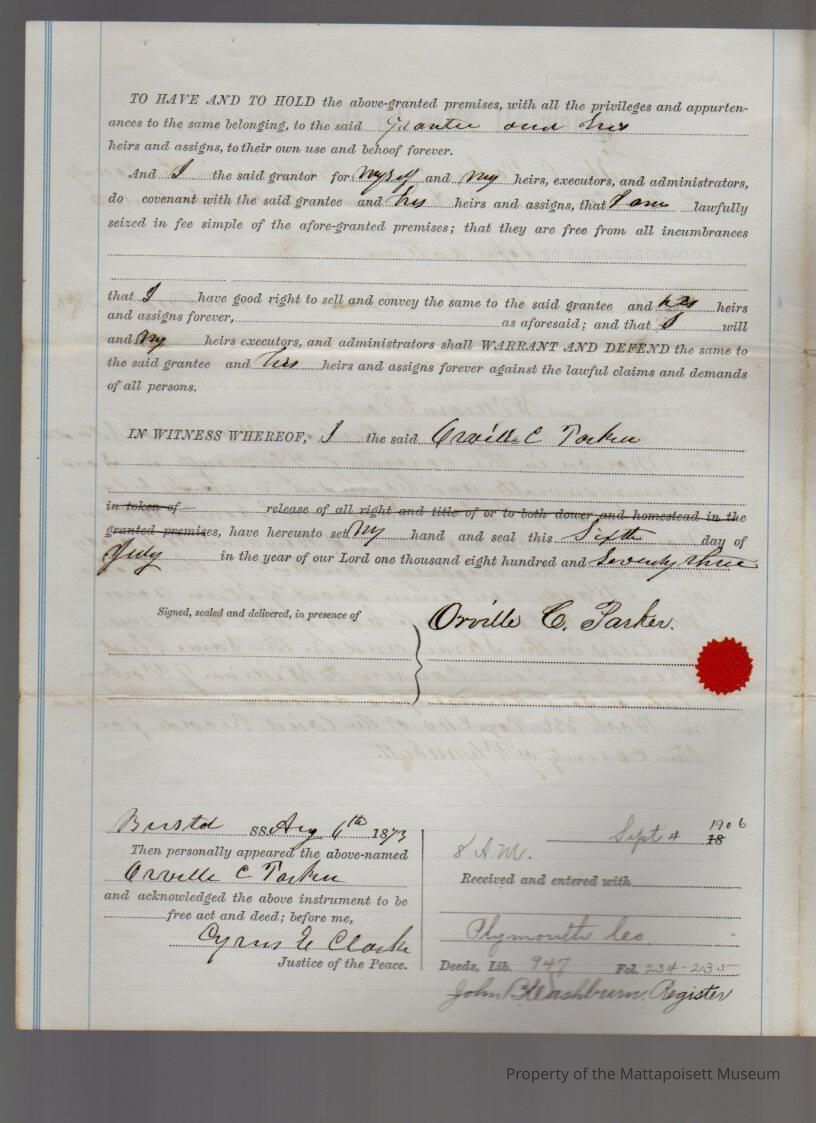 TO HAVE AND TO HOLD the above-granted premises, with all the privileges and appurten-
ances to the same belonging, to the said grantee and his
heirs and assigns, to their own use and behoof forever.
And I the said grantor for myself and my heirs, executors, and administrators,
do covenant with the said grantee and his heirs and assigns, that I am lawfully
seized in fee simple of the afore-granted premises; that they are free from all incumbrances
that I have good right to sell and convey the same to the said grantee and his heirs
and assigns forever, as aforesaid; and that I will
and my heirs executors, and administrators shall WARRANT AND DEFEND the same to
the said grantee and his heirs and assigns forever against the lawful claims and demands
of all persons.
IN WITNESS WHEREOF, I the said Orville C Parker
in token of release of all right and title of or to both dower and homestead in the
granted premises, have hereunto set my hand and seal this Sixth day of
July in the year of our Lord one thousand eight hundred and Seventy three
Signed, sealed and delivered, in presence of
Orville C. Parker.
Bristol SS. Aug 6th 1873
Then personally appeared the above-named
Orville C Parker
and acknowledged the above instrument to be
free act and deed; before me,
Cyrus E Clark
Justice of the Peace.
Sept 4 18 1906
8 A.M.
Received and entered with
Plymouth Co
Deeds, Lib. 947 Fol. 234-235
John B Washburn. Register
Property of the Mattapoisett Museum